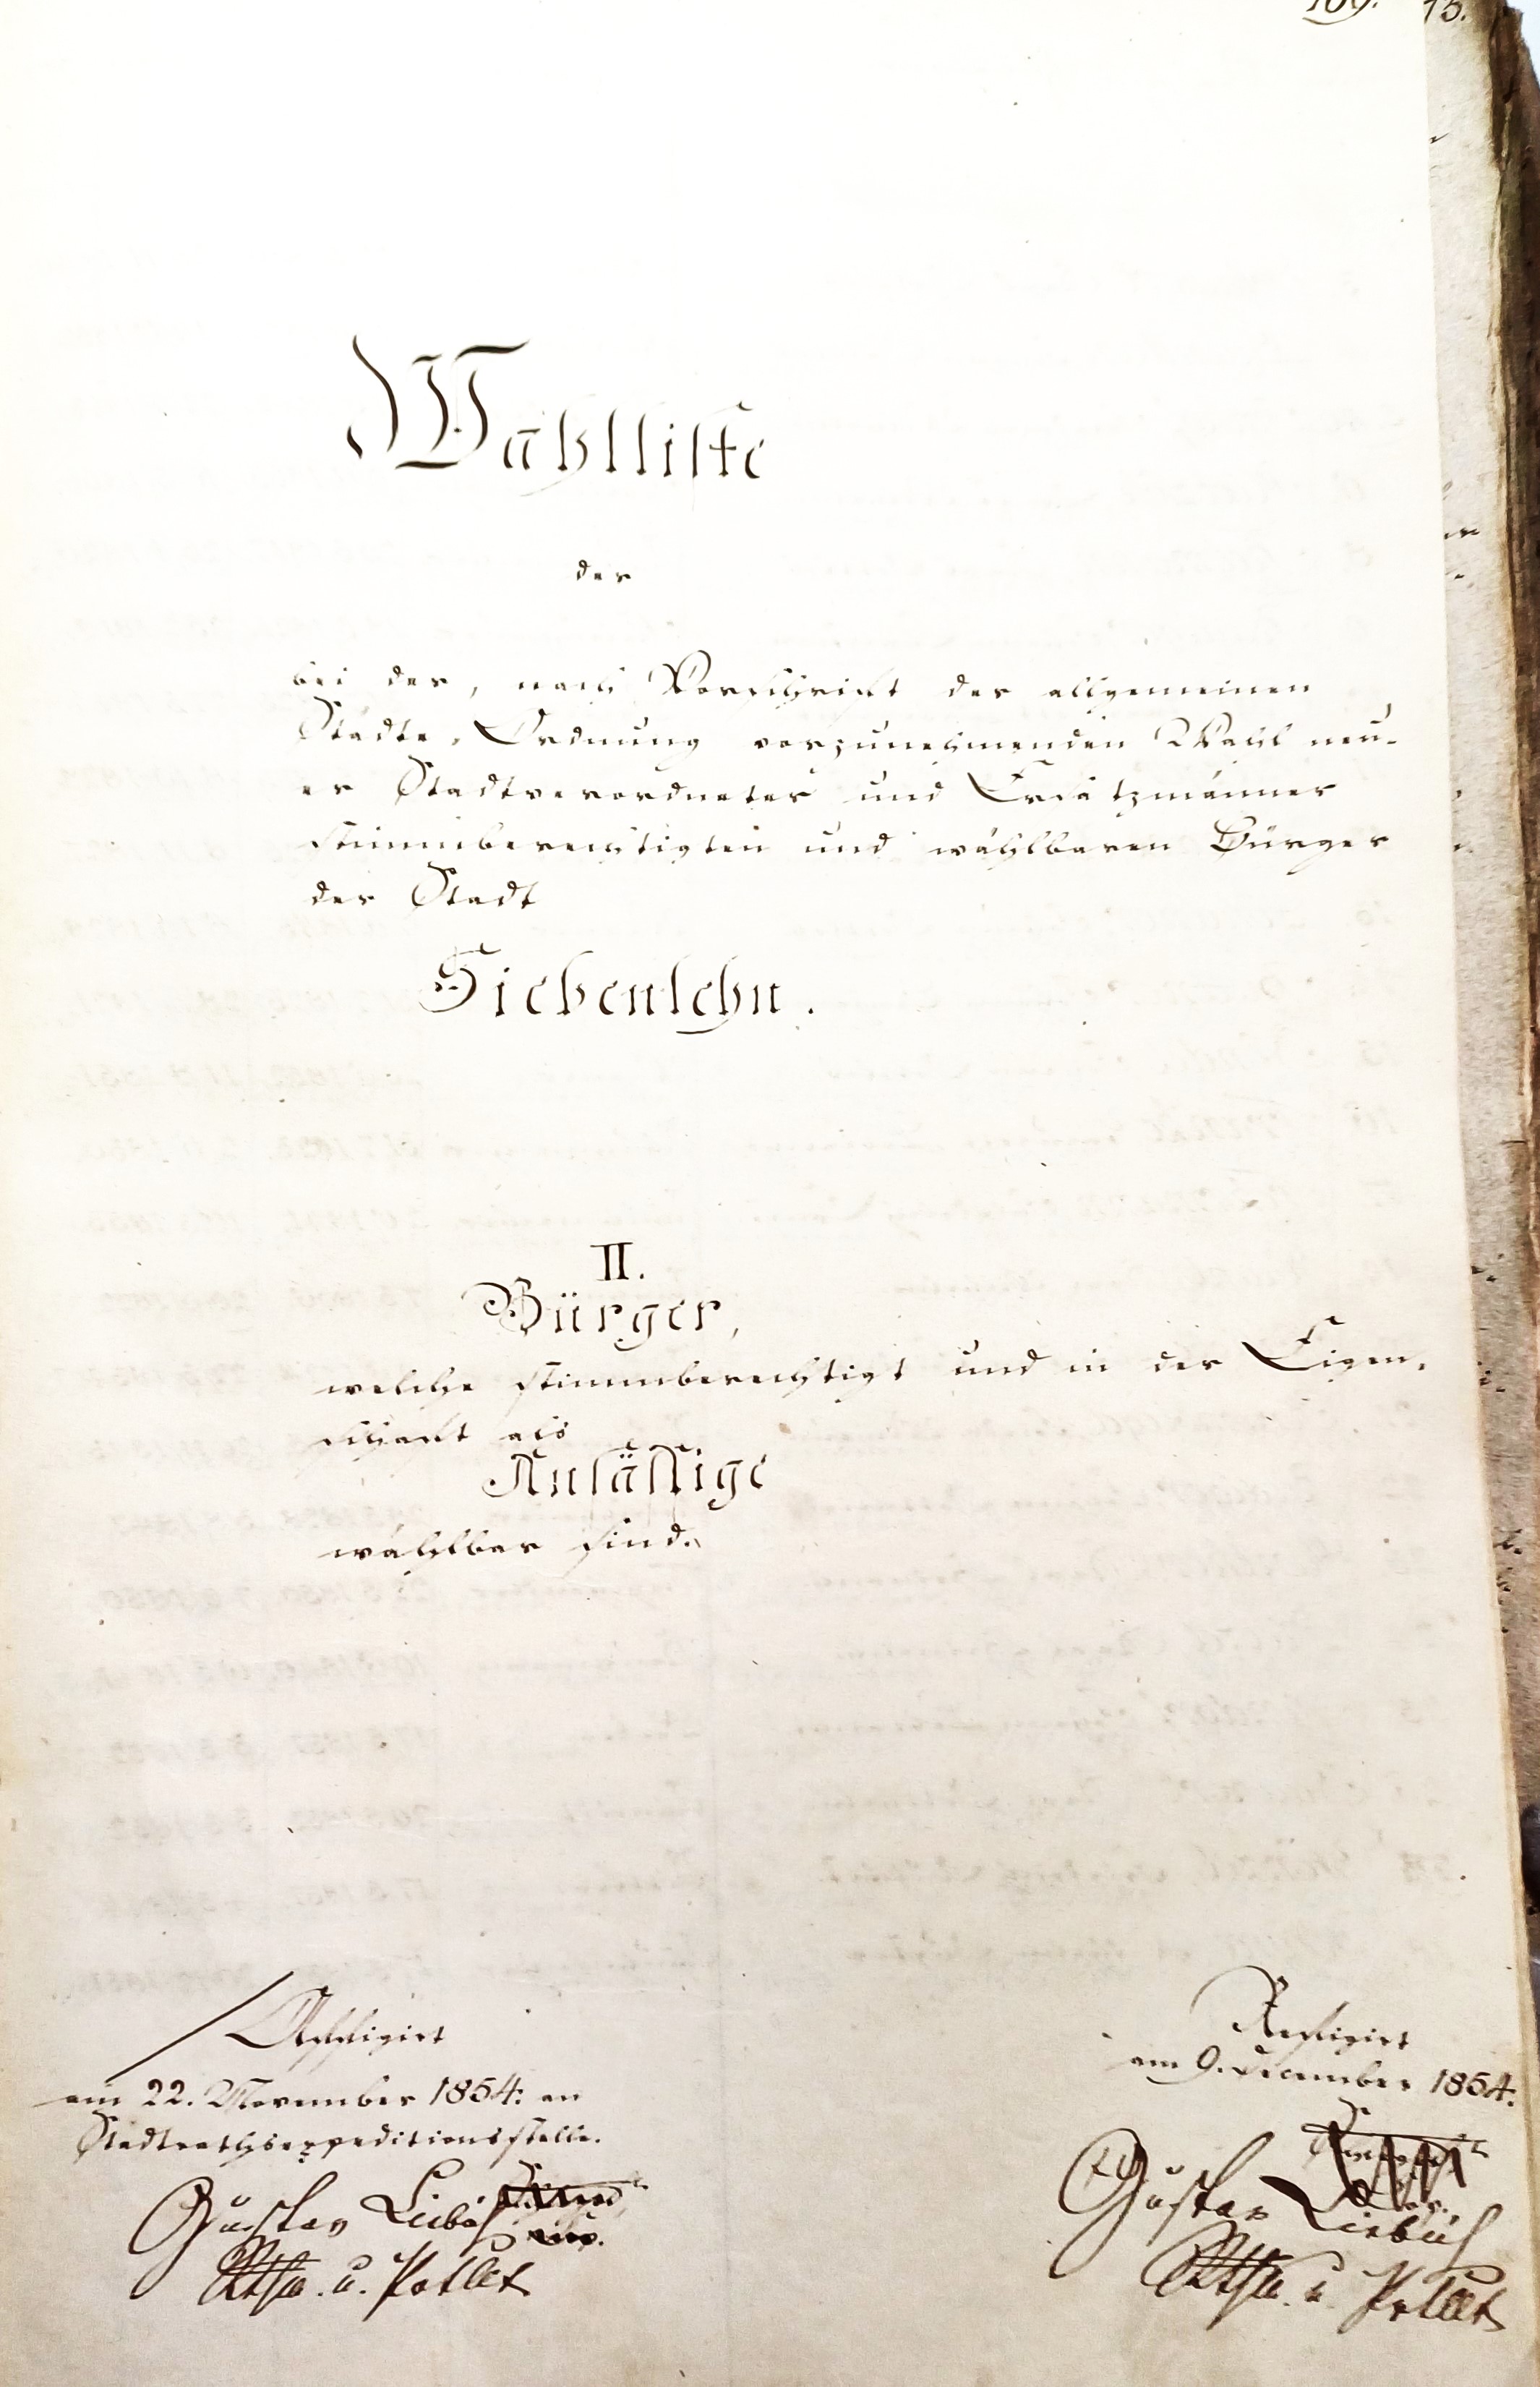 169. 75.
Wahlliste
der
bei der, nach Vorschrift der allgemeinen
Städte-Ordnung vorzunehmenden Wahl neu-
er Stadtverordneter und Ersatzmänner
stimmberechtigten und wählbaren Bürger
der Stadt
Siebenlehn.
II.
Bürger,
welche stimmberechtigt und in der Eigen-
schaft als
Ansässige
wählbar sind.
Affigirt
am 22. November 1854. an
Stadtrathsexpeditionsstelle.
Gustav Liebich
Rths. u. Polizei
Refigirt
am 9. December 1854.
Gustav Liebich
Rths. u. Polizei